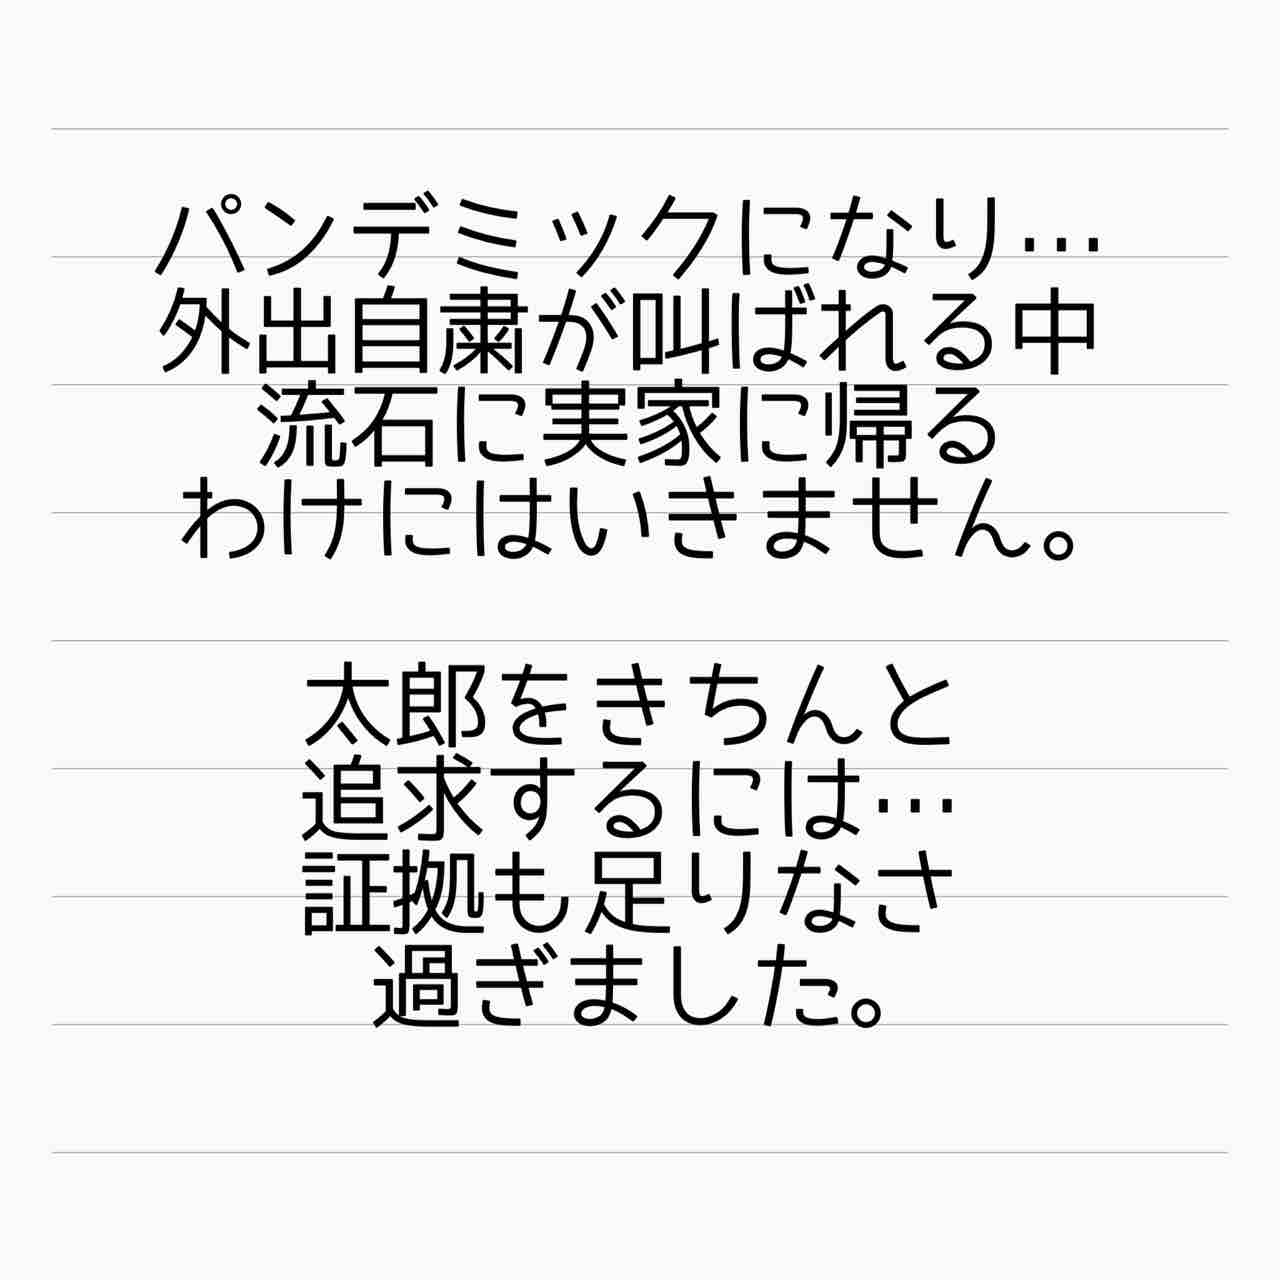 パンデミックになり…
外出自粛が叫ばれる中
流石に実家に帰る
わけにはいきません。
太郎をきちんと
追求するには…
証拠も足りなさ
過ぎました。